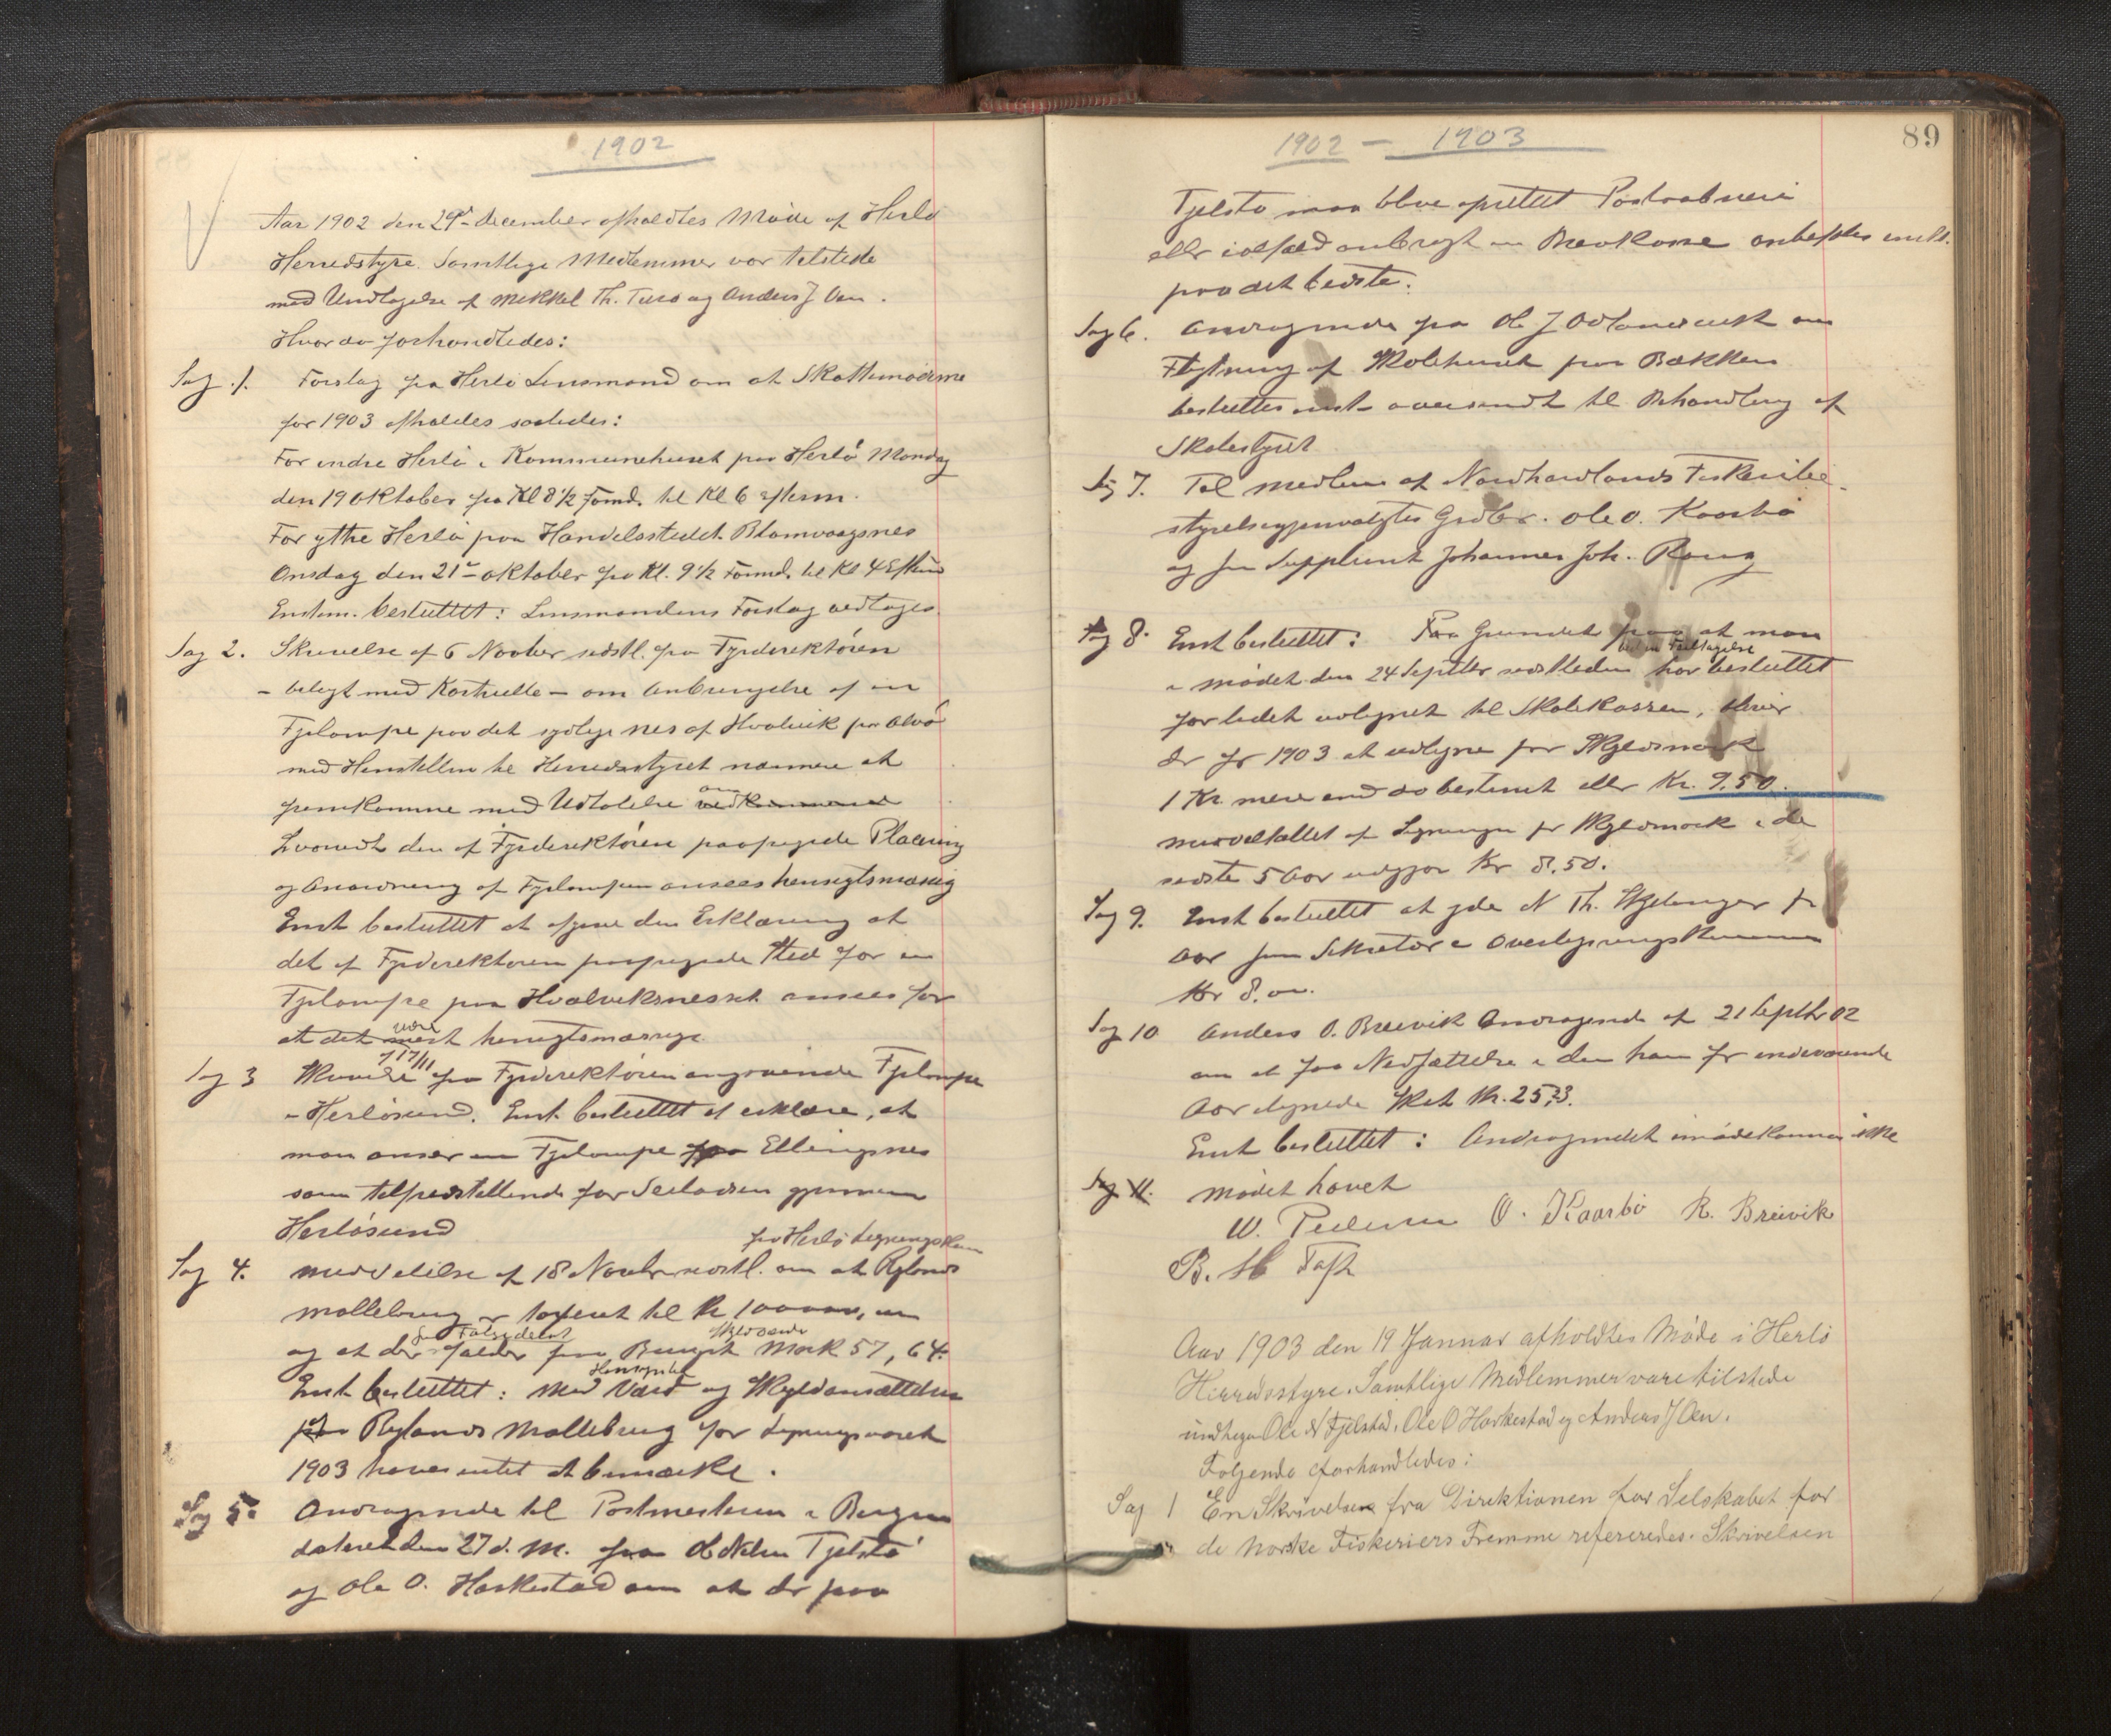 1902
Aar 1902 den 29de december afholdtes Møde af Herlø
Herredstyre. Samtlige Medlemmer var tilstede
med Undtagelse af Mikkel Th. Turø og Anders J Øen.
Hvor da forhandledes:
Sag 1. Forslag fra Herlø Lensmand om at Skattemøderne
for 1903 afholdes saaledes:
For indre Herlø i Kommunehuset paa Herlø Mandag
den 19 Oktober fra Kl 8 1/2 Formd. til Kl 6 efterm.
For ythre Herlø paa Handelsstedet Blomvaagsnes
Onsdag den 21de oktober fra Kl. 9 1/2 Formd. til Kl 4 Efterm
Enstem. besluttet: Lensmandens Forslag vedtages
Sag 2. Skrivelse af 6 Novber sidstl. fra Fyrdirektøren
- belagt med Kartskitse - om Anbringelse af en
Fyrlampe paa det sydlige nes af Hvalvik paa Alvø
med Henstillen til Herredsstyret nærmere at
fremkomme med Udtalelse om vedkommende
hvorvidt den af Fyrdirektøren paapegede Placering
og Anordning af Fyrlampen ansees hensigtsmæsig
Enst besluttet at afgive den Erklæring at
det af Fyrdirektøren paapegede Sted for en
Fyrlampe paa Hvalviksnesset ansees for
at det være mest hensigtsmæssige.
Sag 3 Skrivelse f 17/11 fra Fyrdirektøren angaaende Fyrlampe
i Herløsund. Enst. besluttet at erklære, at
man anser en Fyrlampe paa Ellingsnes
som tilfredsstillende for Seiladsen gjennem
Herløsund
Sag 4. Meddelelse af 18 Novbr sidstl. fra Herlø Ligningskom om at Rylands
Møllebrug er taxeret til Kr 100000,00
og at der som Følge deraf falder paa Bruget Skyldøende Mark 57,64.
Enst besluttet: Med Hensyn til Værd og Skyldansættelsen
paa Rylands Møllebrug for Ligningsaaret
1903 haves intet at bemærke.
Sag 5. Andragende til Postmesteren i Bergen
dateret den 27 d. M. fra Ole Nilsen Tjeldstø
og Ole O. Harkestad om at der paa
1902 - 1903
89
Tjelstø maa blive oprettet Postaabneri
eller ialfald anbragt en Brevkasse anbefales enst.
paa det bedste.
Sag 6. Andragende fra Ole J Adlandsvik om
Flytning af Skolehuset paa Bakken
besluttes enst oversendt til Behandling af
Skolestyret
Sag 7. Til medlem af Nordhordlands Fiskeribe-
styrelse gjenvalgtes Grdbr. Ole O. Kaarbø
og som Supplient Johannes Joh. Rong
Sag 8. Enst besluttet: Paa Grund af at man
i mødet den 24 Septbr sidstleden ved en Feiltagelse har besluttet
for lidet udlignet til Skolekassen, bliver
der for 1903 at udligne pr Skyldmark
1 Kr. mere end da bestemt eller Kr. 9.50.
Middeltallet af Ligningen pr Skyldmark i de
sidste 5 Aar udgjør Kr 8.50.
Sag 9. Enst besluttet at yde N Th. Skjelanger pr
Aar som Sekretær i Overligningskommissionen
Kr 8.00.
Sag 10 Anders O. Breivik Andragende af 21 Septbr 02
om at faa Nedsættelse i den ham for indeværende
Aar ilignede Skat Kr. 25,23.
Enst besluttet: Andragendet imødekommes ikke
Sag 11. Mødet hævet
W. Pedersen O. Kaarbø R. Breivik
B. H Toft
Aar 1903 den 19 Januar afholdtes Møde i Herlø
Herredsstyre. Samtlige Medlemmer vare tilstede
undtagen Ole N Fjelstad, Ole O Harkestad og Anders J Øen.
Følgende forhandledes:
Sag 1 En Skrivelse fra Direktionen for Selskabet for
de norske Fiskeriers Fremme refereredes. Skrivelsen